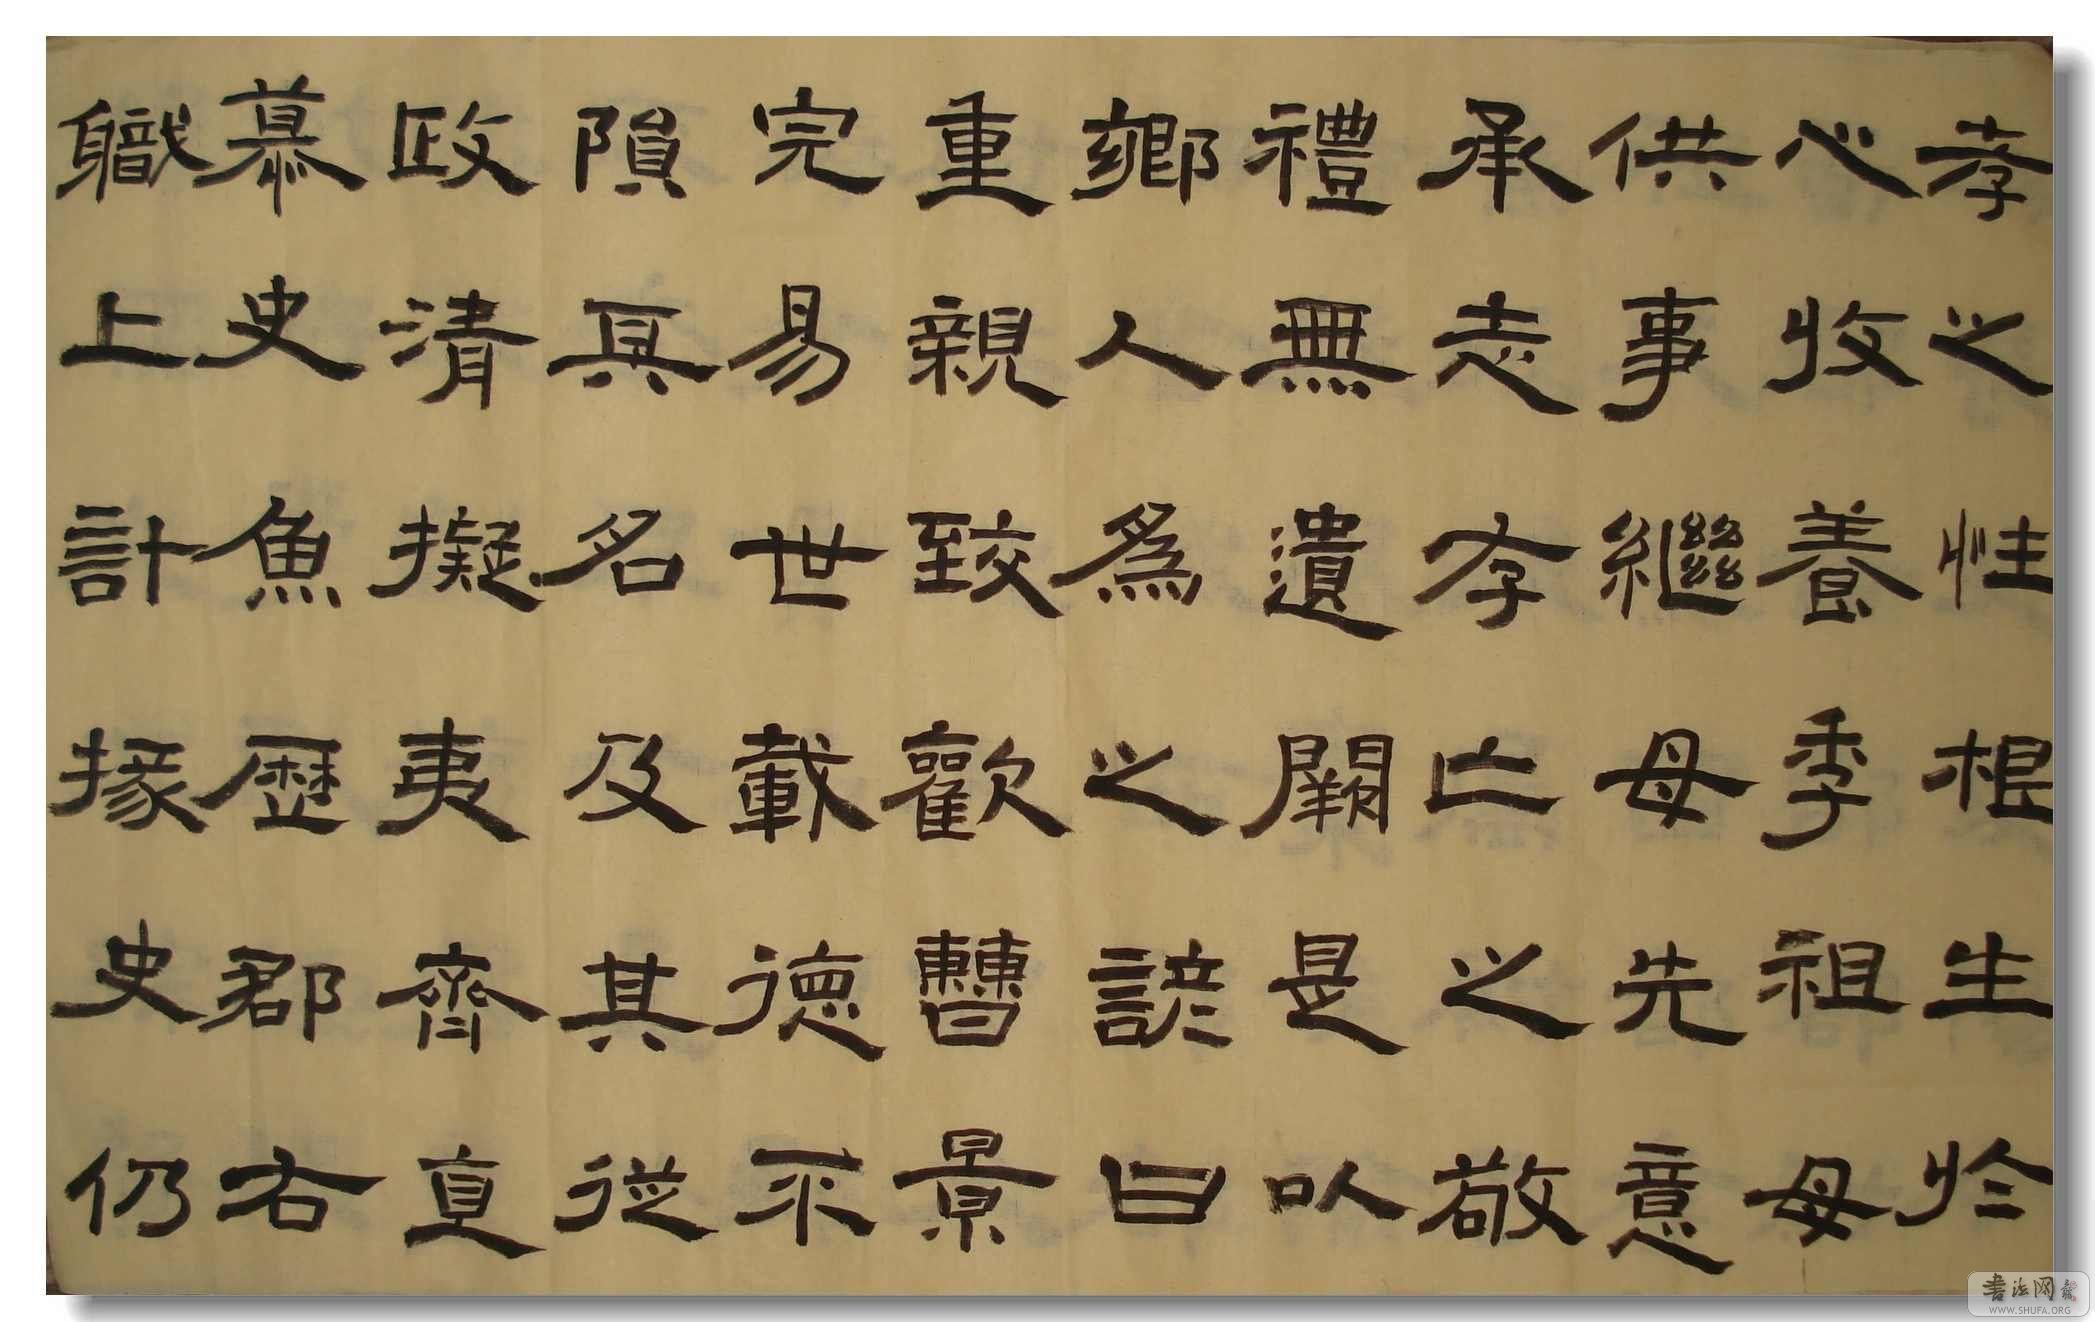 孝之性根生於
心收養季祖母
供事繼母先意
承志存亡之敬
禮無遺闕是以
鄉人為之諺曰
重親致歡曹景
完易世載德不
隕其名及其從
政清擬夷齊直
慕史魚歷郡右
職上計掾史仍
書法网
WWW.SHUFA.ORG